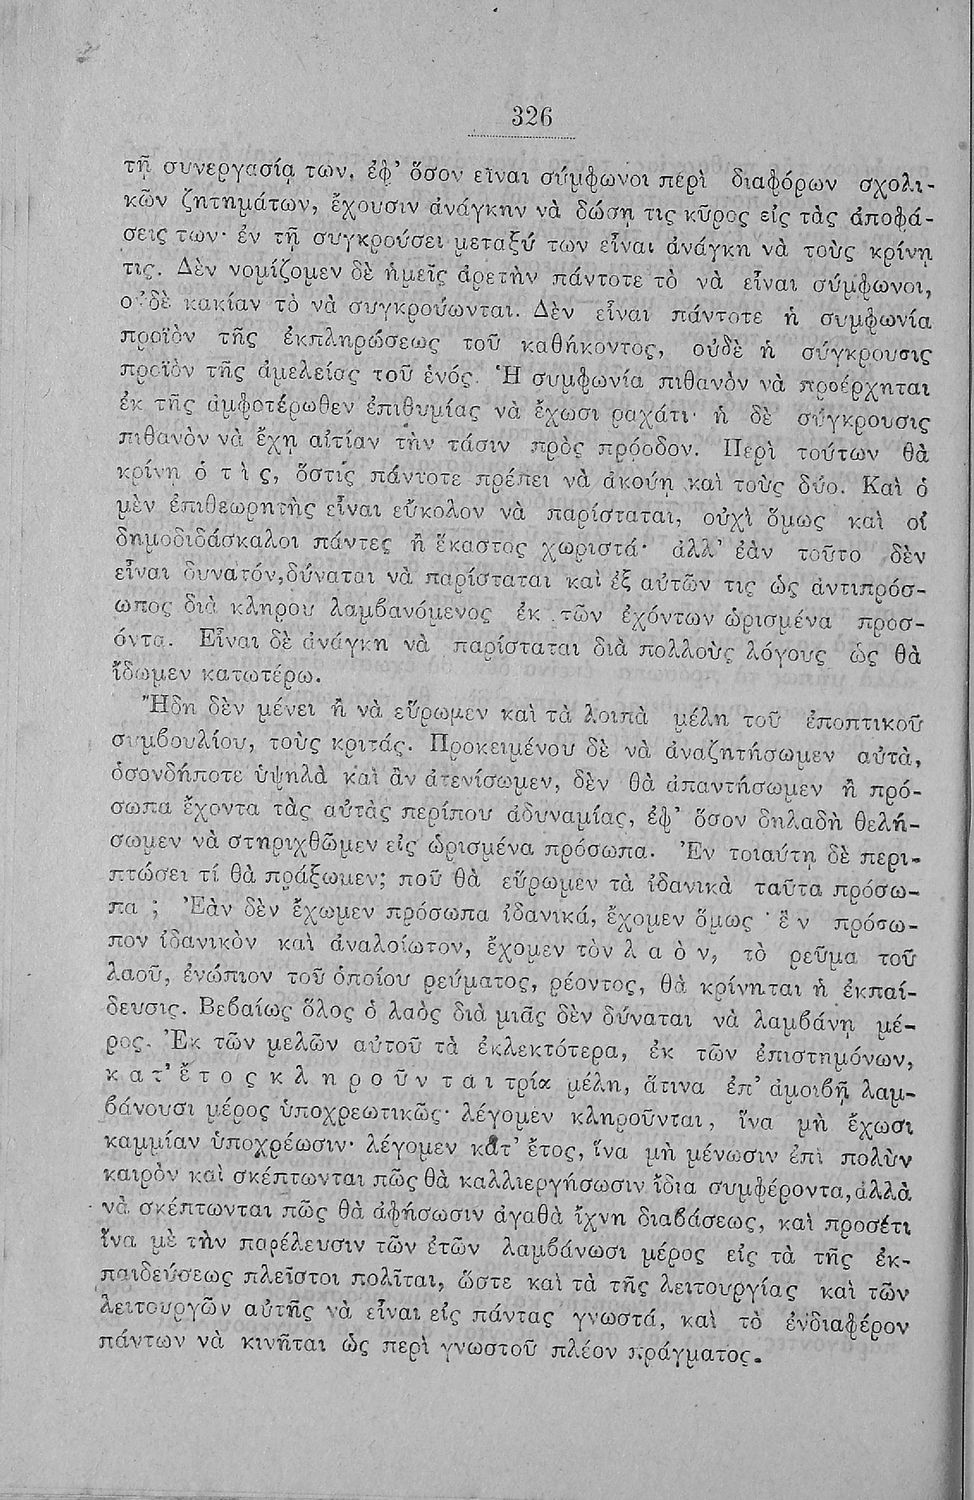 326
τῇ συνεργασίᾳ των, ἐφ’ ὅσον εἶναι σύμφωνοι περὶ διαφόρων σχολι-
κῶν ζητημάτων, ἔχουσιν ἀνάγκην νὰ δώσῃ τις κῦρος εἰς τὰς ἀποφά-
σεις των· ἐν τῇ συγκρούσει μεταξύ των εἶναι ἀνάγκη νὰ τοὺς κρίνῃ
τις. Δὲν νομίζομεν δὲ ἡμεῖς ἀρετὴν πάντοτε τὸ νὰ εἶναι σύμφωνοι,
οὐδὲ κακίαν τὸ νὰ συγκρούωνται. Δὲν εἶναι πάντοτε ἡ συμφωνία
προϊὸν τῆς ἐκπληρώσεως τοῦ καθήκοντος, οὐδὲ ἡ σύγκρουσις
προϊὸν τῆς ἀμελείας τοῦ ἑνός. Ἡ συμφωνία πιθανὸν νὰ προέρχηται
ἐκ τῆς ἀμφοτέρωθεν ἐπιθυμίας νὰ ἔχωσι ραχάτι· ἡ δὲ σύγκρουσις
πιθανὸν νὰ ἔχῃ αἰτίαν τὴν τάσιν πρὸς πρόοδον. Περὶ τούτων θὰ
κρίνῃ ὁ τ ὶ ς, ὅστις πάντοτε πρέπει νὰ ἀκούῃ καὶ τοὺς δύο. Καὶ ὁ
μὲν ἐπιθεωρητὴς εἶναι εὔκολον νὰ παρίσταται, οὐχὶ ὅμως καὶ οἱ
δημοδιδάσκαλοι πάντες ἢ ἕκαστος χωριστά· ἀλλ’ ἐὰν τοῦτο δὲν
εἶναι δυνατόν, δύναται νὰ παρίσταται καὶ ἐξ αὐτῶν τις ὡς ἀντιπρόσ-
ωπος διὰ κλήρου λαμβανόμενος ἐκ τῶν ἐχόντων ὡρισμένα προσ-
όντα. Εἶναι δὲ ἀνάγκη νὰ παρίσταται διὰ πολλοὺς λόγους ὡς θὰ
ἴδωμεν κατωτέρω.
Ἤδη δὲν μένει ἢ νὰ εὕρωμεν καὶ τὰ λοιπὰ μέλη τοῦ ἐποπτικοῦ
συμβουλίου, τοὺς κριτάς. Προκειμένου δὲ νὰ ἀναζητήσωμεν αὐτὰ,
ὁσονδήποτε ὑψηλὰ καὶ ἂν ἀτενίσωμεν, δὲν θὰ ἀπαντήσωμεν ἢ πρό-
σωπα ἔχοντα τὰς αὐτὰς περίπου ἀδυναμίας, ἐφ’ ὅσον δηλαδὴ θελή-
σωμεν νὰ στηριχθῶμεν εἰς ὡρισμένα πρόσωπα. Ἐν τοιαύτῃ δὲ περι-
πτώσει τί θὰ πράξωμεν; ποῦ θὰ εὕρωμεν τὰ ἰδανικὰ ταῦτα πρόσω-
πα ; Ἐὰν δὲν ἔχωμεν πρόσωπα ἰδανικά, ἔχομεν ὅμως ἓ ν πρόσω-
πον ἰδανικὸν καὶ ἀναλοίωτον, ἔχομεν τὸν λ α ὸ ν, τὸ ρεῦμα τοῦ
λαοῦ, ἐνώπιον τοῦ ὁποίου ρεύματος, ρέοντος, θὰ κρίνηται ἡ ἐκπαί-
δευσις. Βεβαίως ὅλος ὁ λαὸς διὰ μιᾶς δὲν δύναται νὰ λαμβάνῃ μέ-
ρος. Ἐκ τῶν μελῶν αὐτοῦ τὰ ἐκλεκτότερα, ἐκ τῶν ἐπιστημόνων,
κ α τ’ ἔ τ ο ς κ λ η ρ ο ῦ ν τ α ι τρία μέλη, ἅτινα ἐπ’ ἀμοιβῇ λαμ-
βάνουσι μέρος ὑποχρεωτικῶς· λέγομεν κληροῦνται, ἵνα μὴ ἔχωσι
καμμίαν ὑποχρέωσιν· λέγομεν κατ’ ἔτος, ἵνα μὴ μένωσιν ἐπὶ πολὺν
καιρὸν καὶ σκέπτωνται πῶς θὰ καλλιεργήσωσιν ἴδια συμφέροντα, ἀλλὰ
νὰ σκέπτωνται πῶς θὰ ἀφήσωσιν ἀγαθὰ ἴχνη διαβάσεως, καὶ προσέτι
ἵνα μὲ τὴν παρέλευσιν τῶν ἐτῶν λαμβάνωσι μέρος εἰς τὰ τῆς ἐκ-
παιδεύσεως πλεῖστοι πολῖται, ὥστε καὶ τὰ τῆς λειτουργίας καὶ τῶν
λειτουργῶν αὐτῆς νὰ εἶναι εἰς πάντας γνωστά, καὶ τὸ ἐνδιαφέρον
πάντων νὰ κινῆται ὡς περὶ γνωστοῦ πλέον πράγματος.